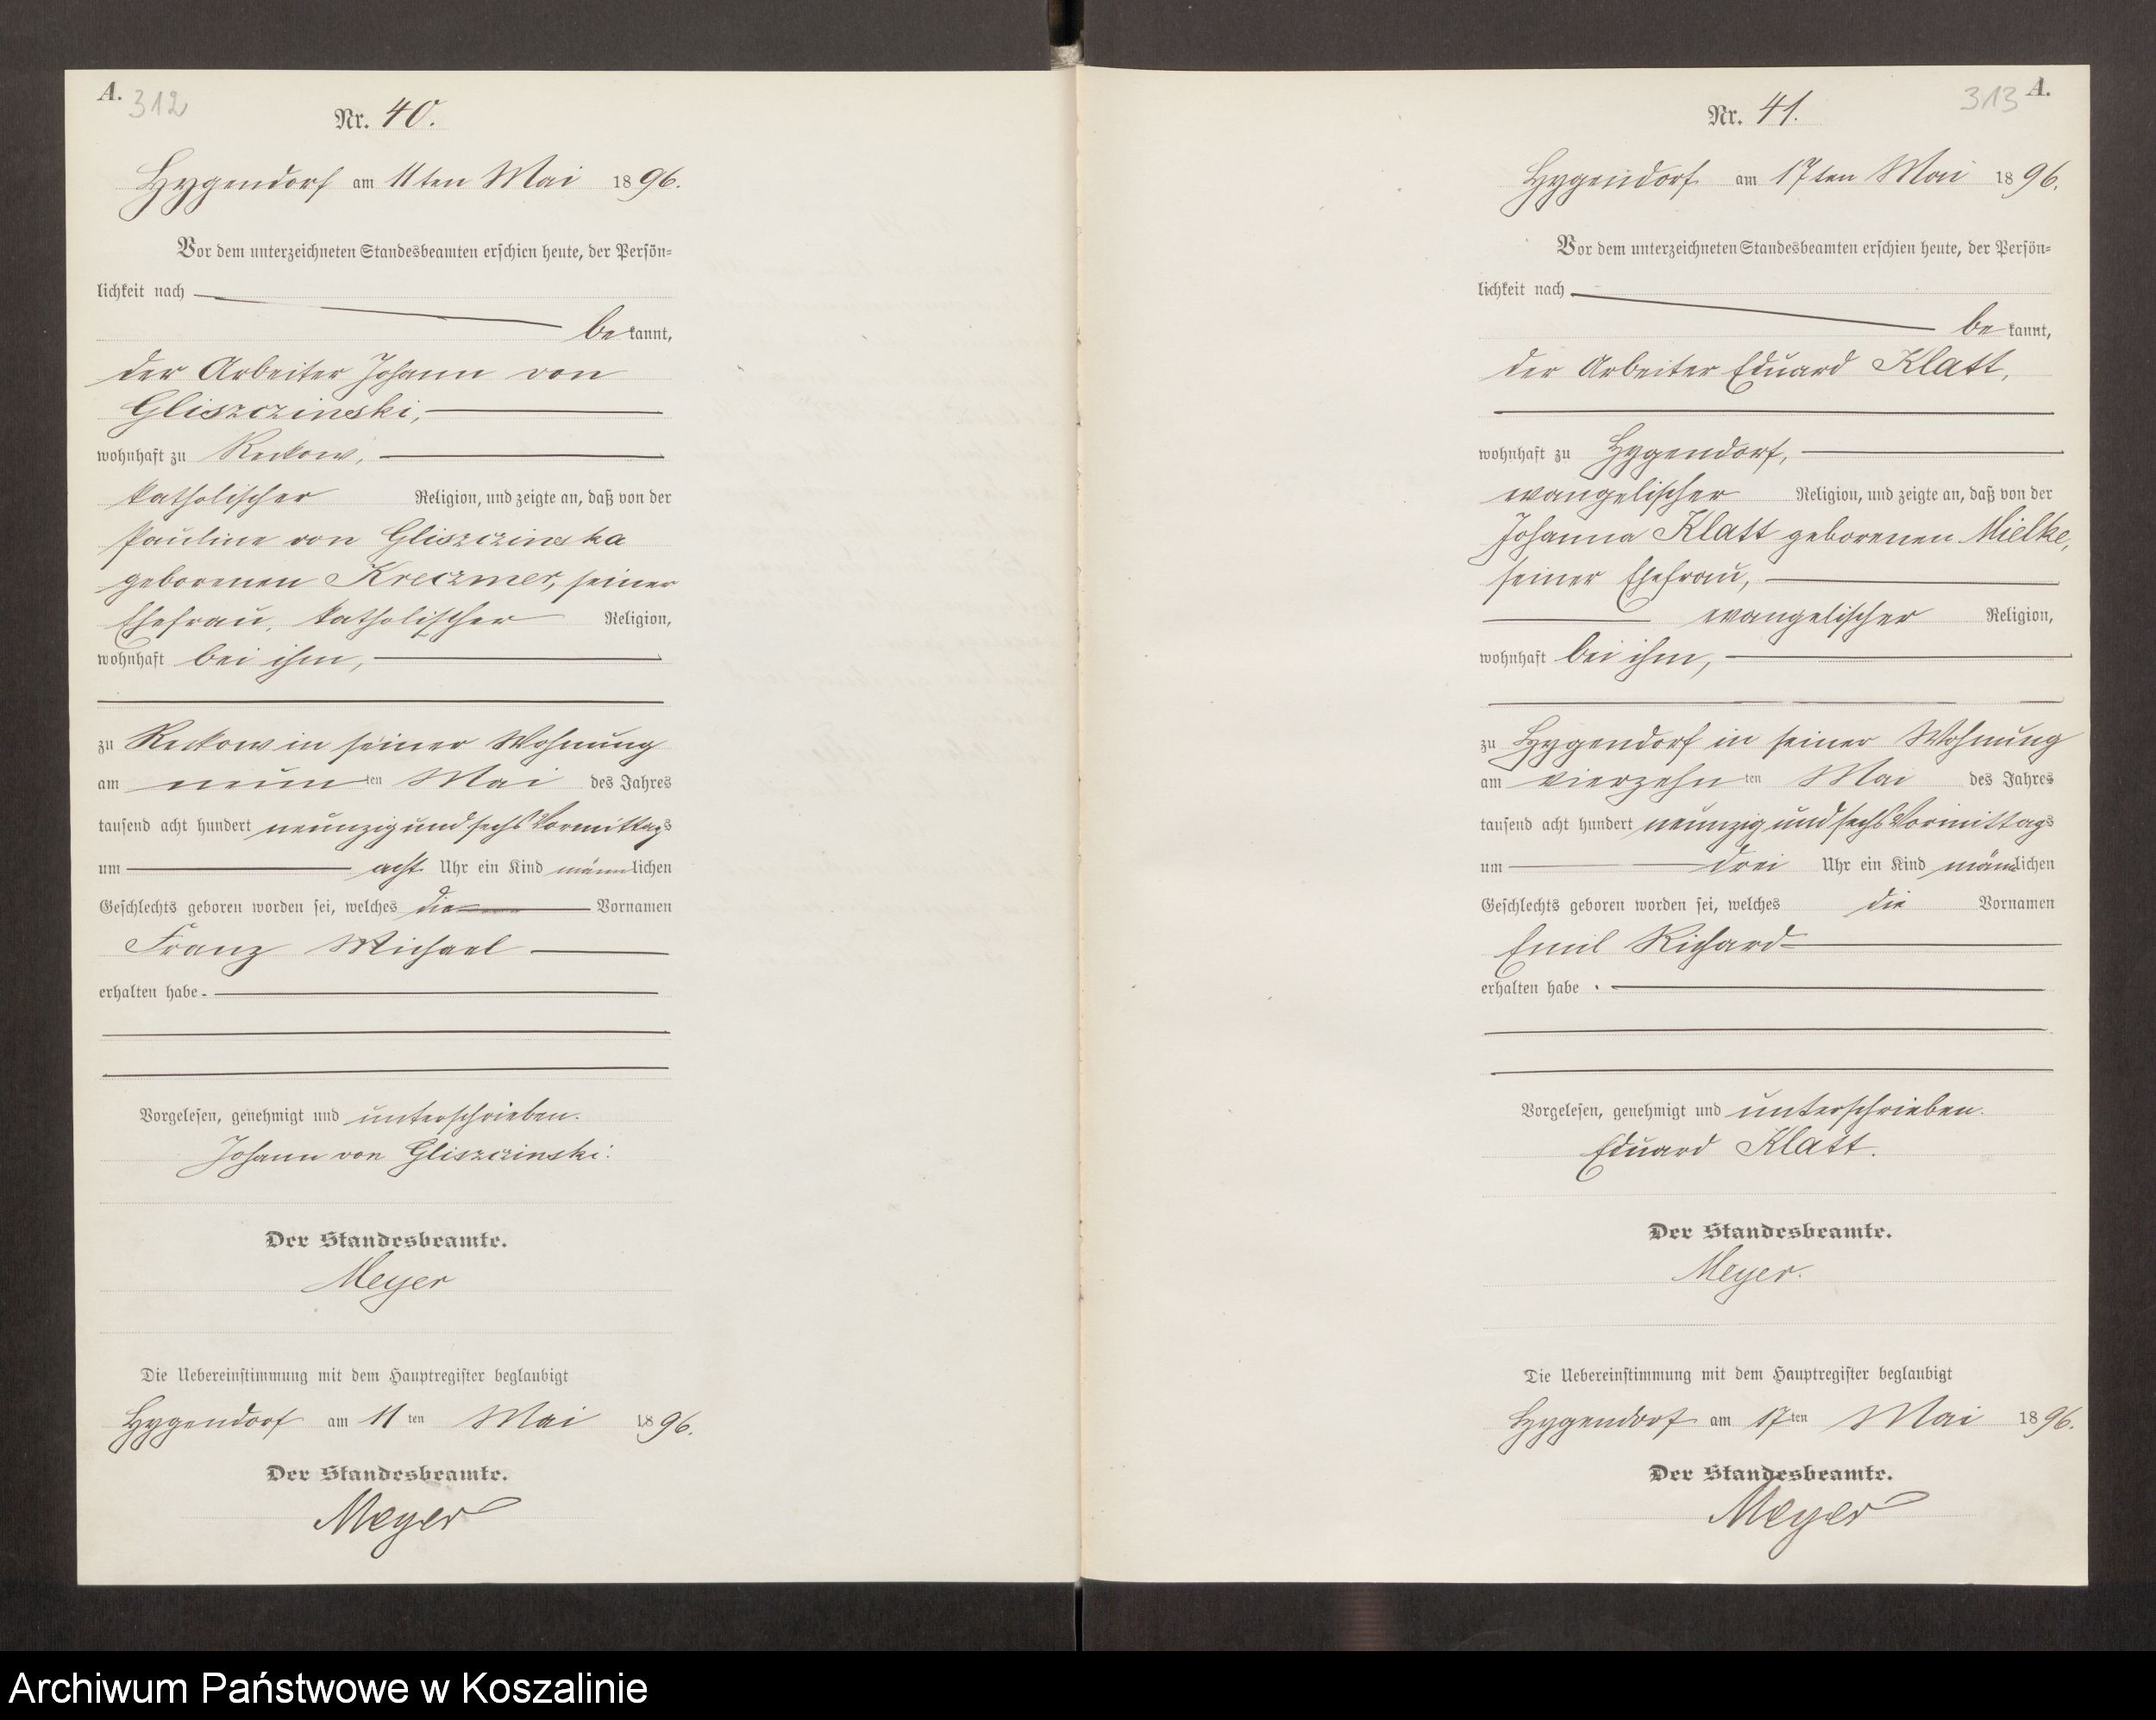 A. 312
Nr. 40.
Hygendorf am 11ten Mai 1896.
Vor dem unterzeichneten Standesbeamten erschien heute, der Persön-
lichkeit nach
be kannt,
der Arbeiter Johann von
Gliszczinski,
wohnhaft zu Reckow,
katholischer Religion, und zeigte an, daß von der
Pauline von Gliszczinska
geborenen Kreczmer, seiner
Ehefrau, katholischer Religion,
wohnhaft bei ihm,
zu Reckow in seiner Wohnung
am neun ten Mai des Jahres
tausend acht hundert neunzig und sechs Vormittags
um acht Uhr ein Kind männlichen
Geschlechts geboren worden sei, welches die Vornamen
Franz Michael
erhalten habe.
Vorgelesen, genehmigt und unterschrieben.
Johann von Gliszczinski.
Der Standesbeamte.
Meyer
Die Uebereinstimmung mit dem Hauptregister beglaubigt
Hygendorf am 11ten Mai 1896.
Der Standesbeamte.
Meyer
313 A.
Nr. 41.
Hygendorf am 17ten Mai 1896.
Vor dem unterzeichneten Standesbeamten erschien heute, der Persön-
lichkeit nach
be kannt,
der Arbeiter Eduard Klatt,
wohnhaft zu Hygendorf,
evangelischer Religion, und zeigte an, daß von der
Johanna Klatt geborenen Mielke,
seiner Ehefrau,
evangelischer Religion,
wohnhaft bei ihm,
zu Hygendorf in seiner Wohnung
am vierzehn ten Mai des Jahres
tausend acht hundert neunzig und sechs Vormittags
um drei Uhr ein Kind männlichen
Geschlechts geboren worden sei, welches die Vornamen
Emil Richard
erhalten habe.
Vorgelesen, genehmigt und unterschrieben.
Eduard Klatt.
Der Standesbeamte.
Meyer.
Die Uebereinstimmung mit dem Hauptregister beglaubigt
Hygendorf am 17ten Mai 1896.
Der Standesbeamte.
Meyer
Archiwum Państwowe w Koszalinie